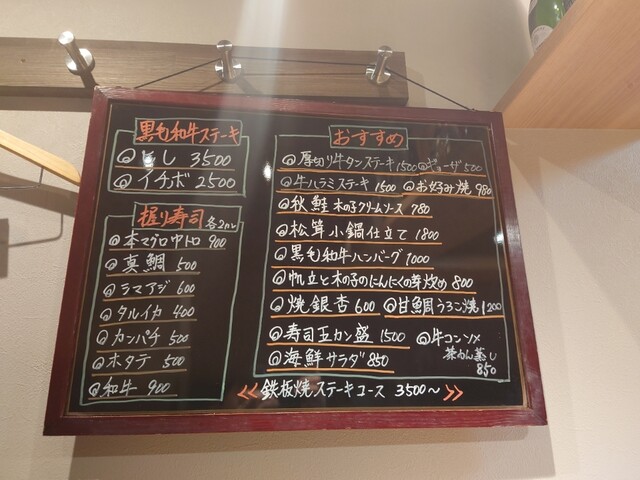 黒毛和牛ステーキ
◎ヒレ 3500
◎イチボ 2500
握り寿司 各2カン
◎本マグロ中トロ 900
◎真鯛 500
◎シマアジ 600
◎タルイカ 400
◎カンパチ 500
◎ホタテ 500
◎和牛 900
おすすめ
◎厚切り牛タンステーキ 1500 ◎ギョーザ 500
◎牛ハラミステーキ 1500 ◎お好み焼 980
◎秋鮭 木の子クリームソース 780
◎松茸小鍋仕立て 1800
◎黒毛和牛ハンバーグ 1000
◎帆立と木の子のにんにくの芽炒め 800
◎焼銀杏 600 ◎甘鯛うろこ焼 1200
◎寿司五カン盛 1500 ◎牛コンソメ
茶わん蒸し
850
◎海鮮サラダ 850
≪鉄板焼ステーキコース 3500〜≫